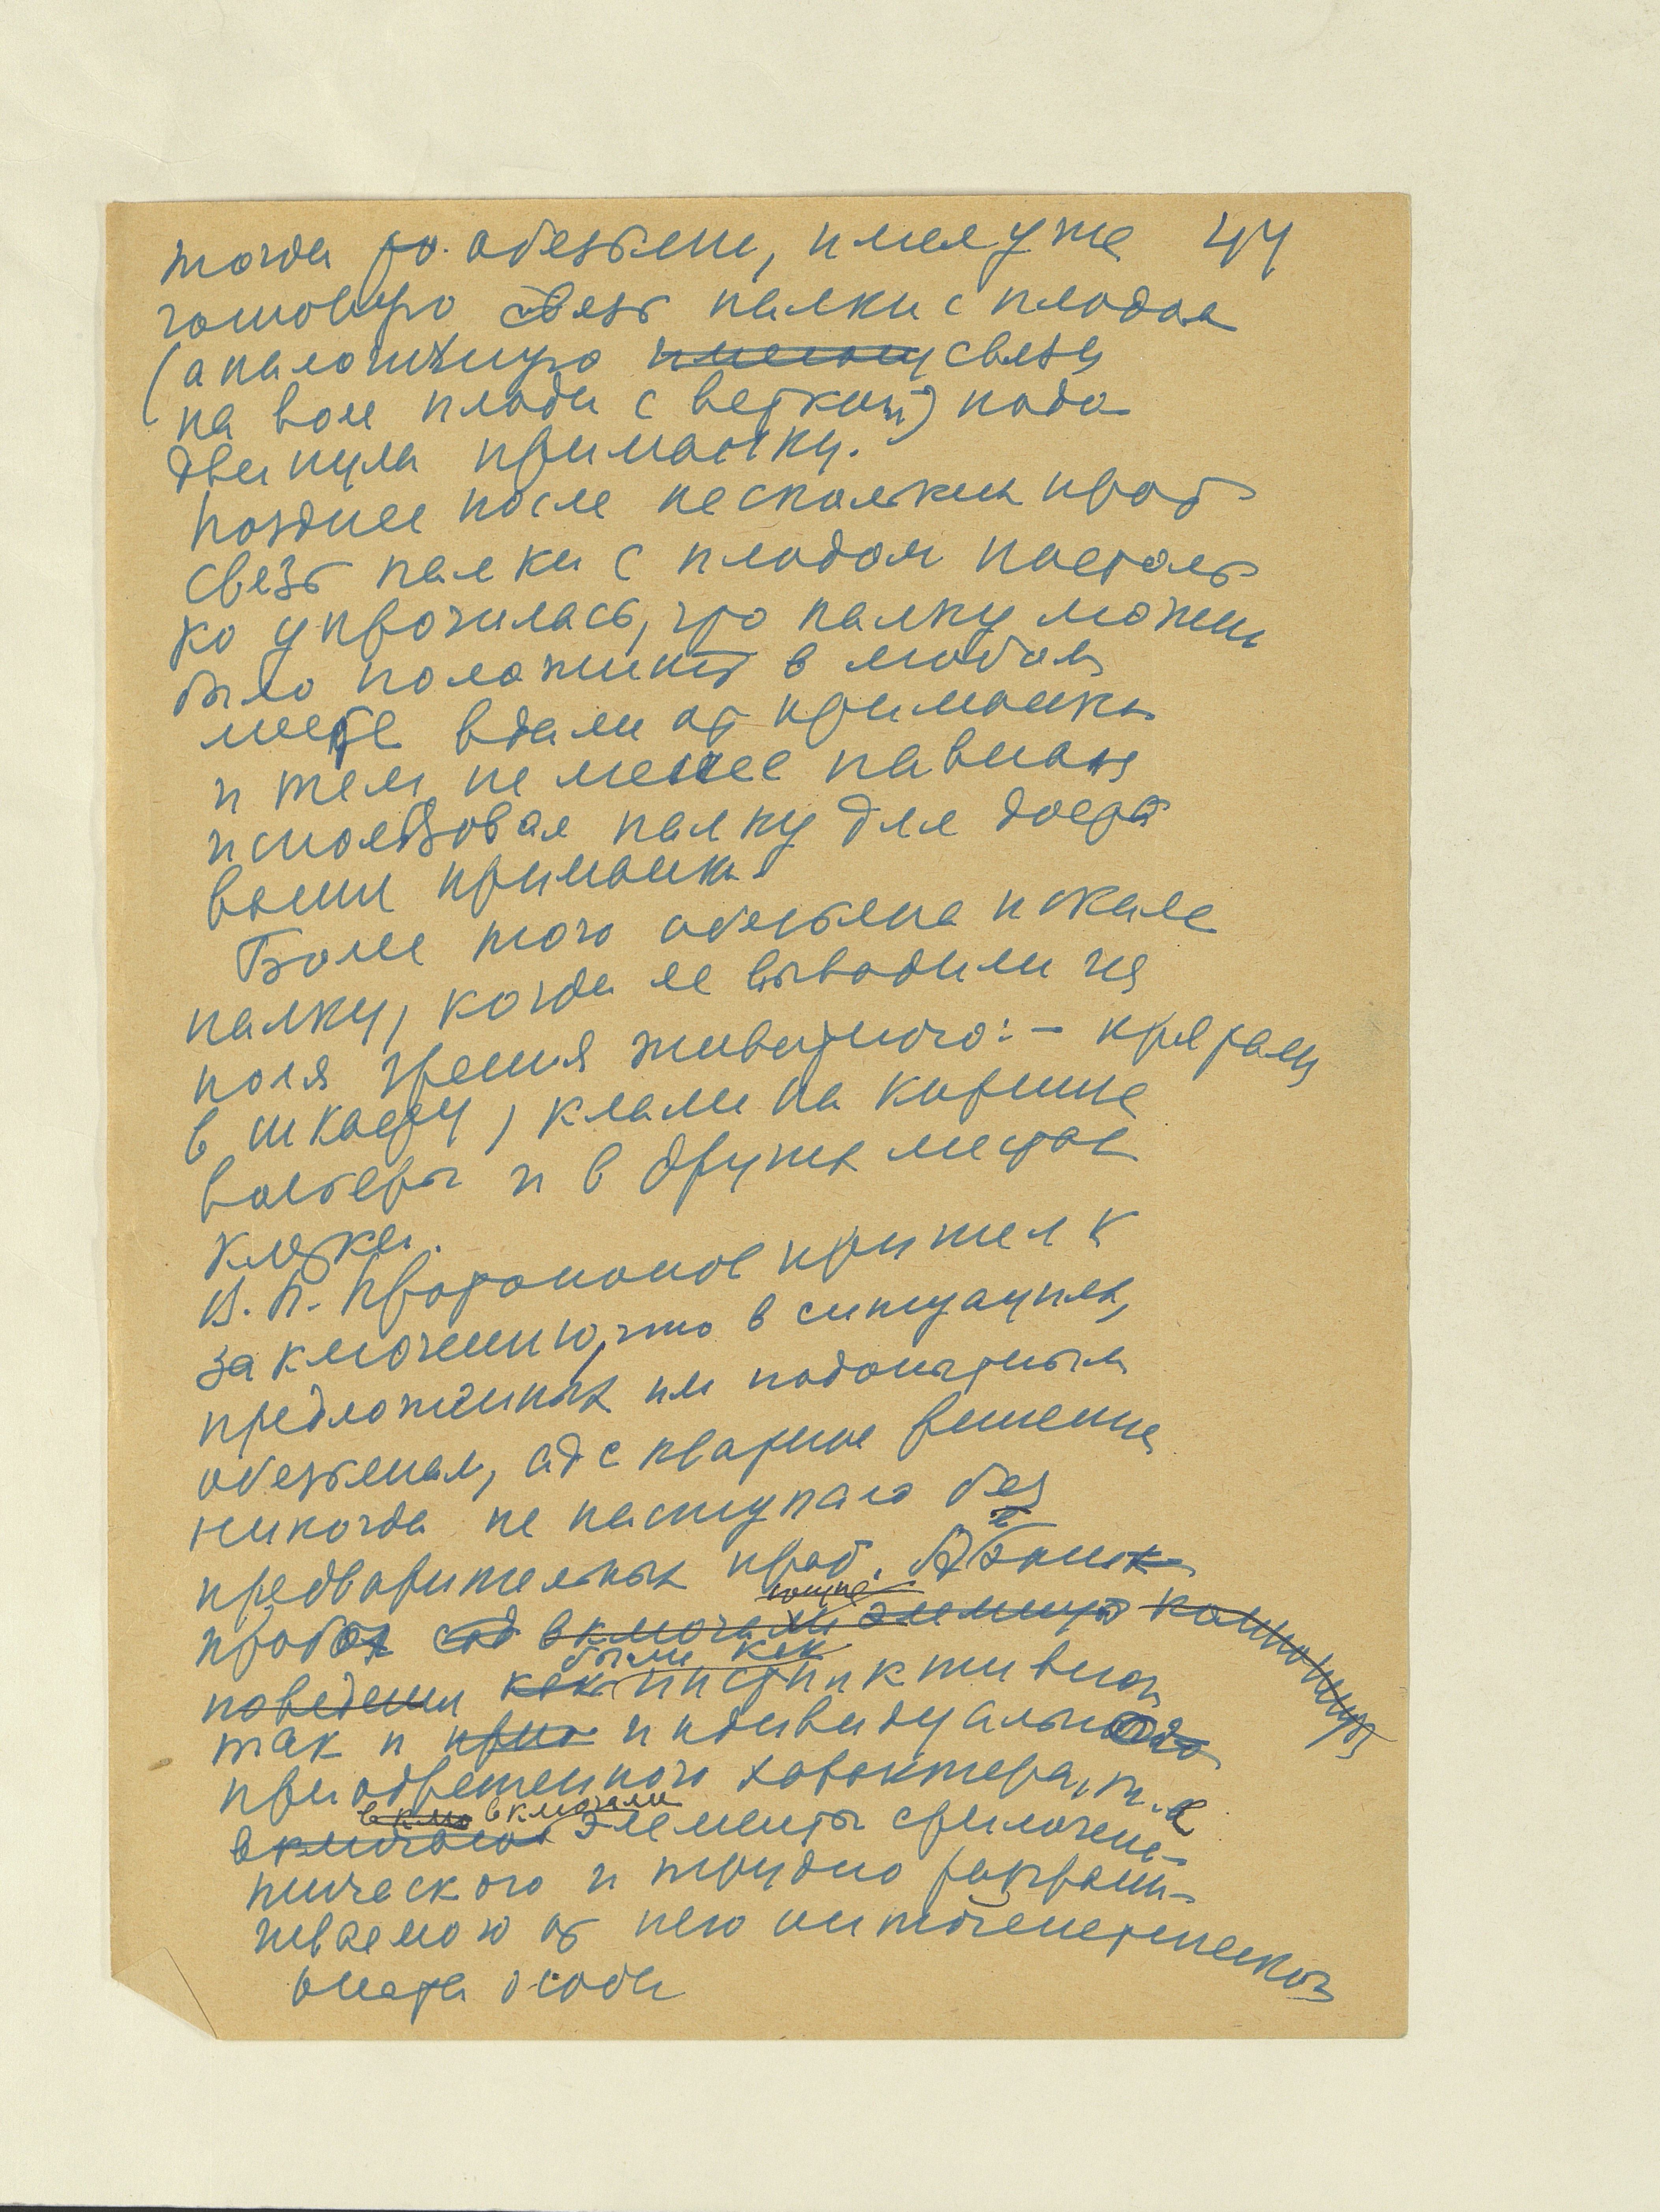 тогда обезьяна, имея уже 44
готовую связь палки с плодом
(аналогичную имеющ связи
на воле плода с веткой) подо
двинула приманку.
Позднее после нескольких проб
связь палки с плодом настоль
ко упрочилась, что палку можно
было положить в любом
месте вдали от приманки
и тем не менее павиан
использовал палку для доста
вания приманки.
Более того обезьяна искала
палку, когда ее выводили из
поля зрения животного: - прятали
в шкафу, клали на карниз
вольеры и в других местах
клетки.
В. П. Протопопов пришел к
заключению, что в ситуациях,
предложенных им подопытным
обезьянам, адекватное решение
никогда не наступало без
предварительных проб.
пробы включали элементы
были как
поведения как инстинктивного
так и индивидуального
приобретенного характера, т.е.
вклю включали
включали элементы филогене-
тического и трудно
от него онтогенетического
опыта особи